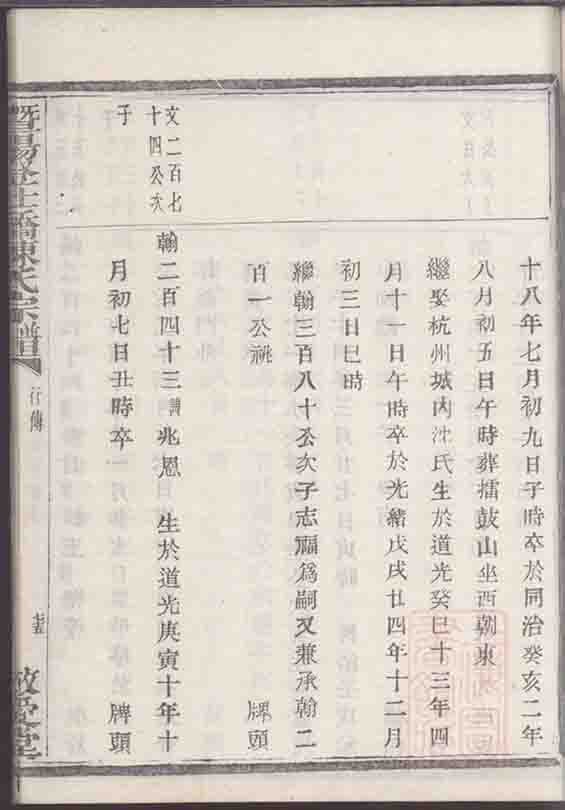 十八年七月初九日子時卒於同治癸亥二年
八月初五日午時葬擂鼓山坐西朝東
繼娶杭州城內沈氏生於道光癸巳十三年四
月十一日午時卒於光緒戊戌廿四年十二月
初三日巳時
繼翰三百八十公次子志福爲嗣又兼承翰二
百一公祧 牌頭
文二百七
十四公次
子
翰二百四十三 諱 兆恩 生於道光庚寅十年十
月初七日丑時卒 牌頭
暨陽 橋陳氏宗譜
行傳